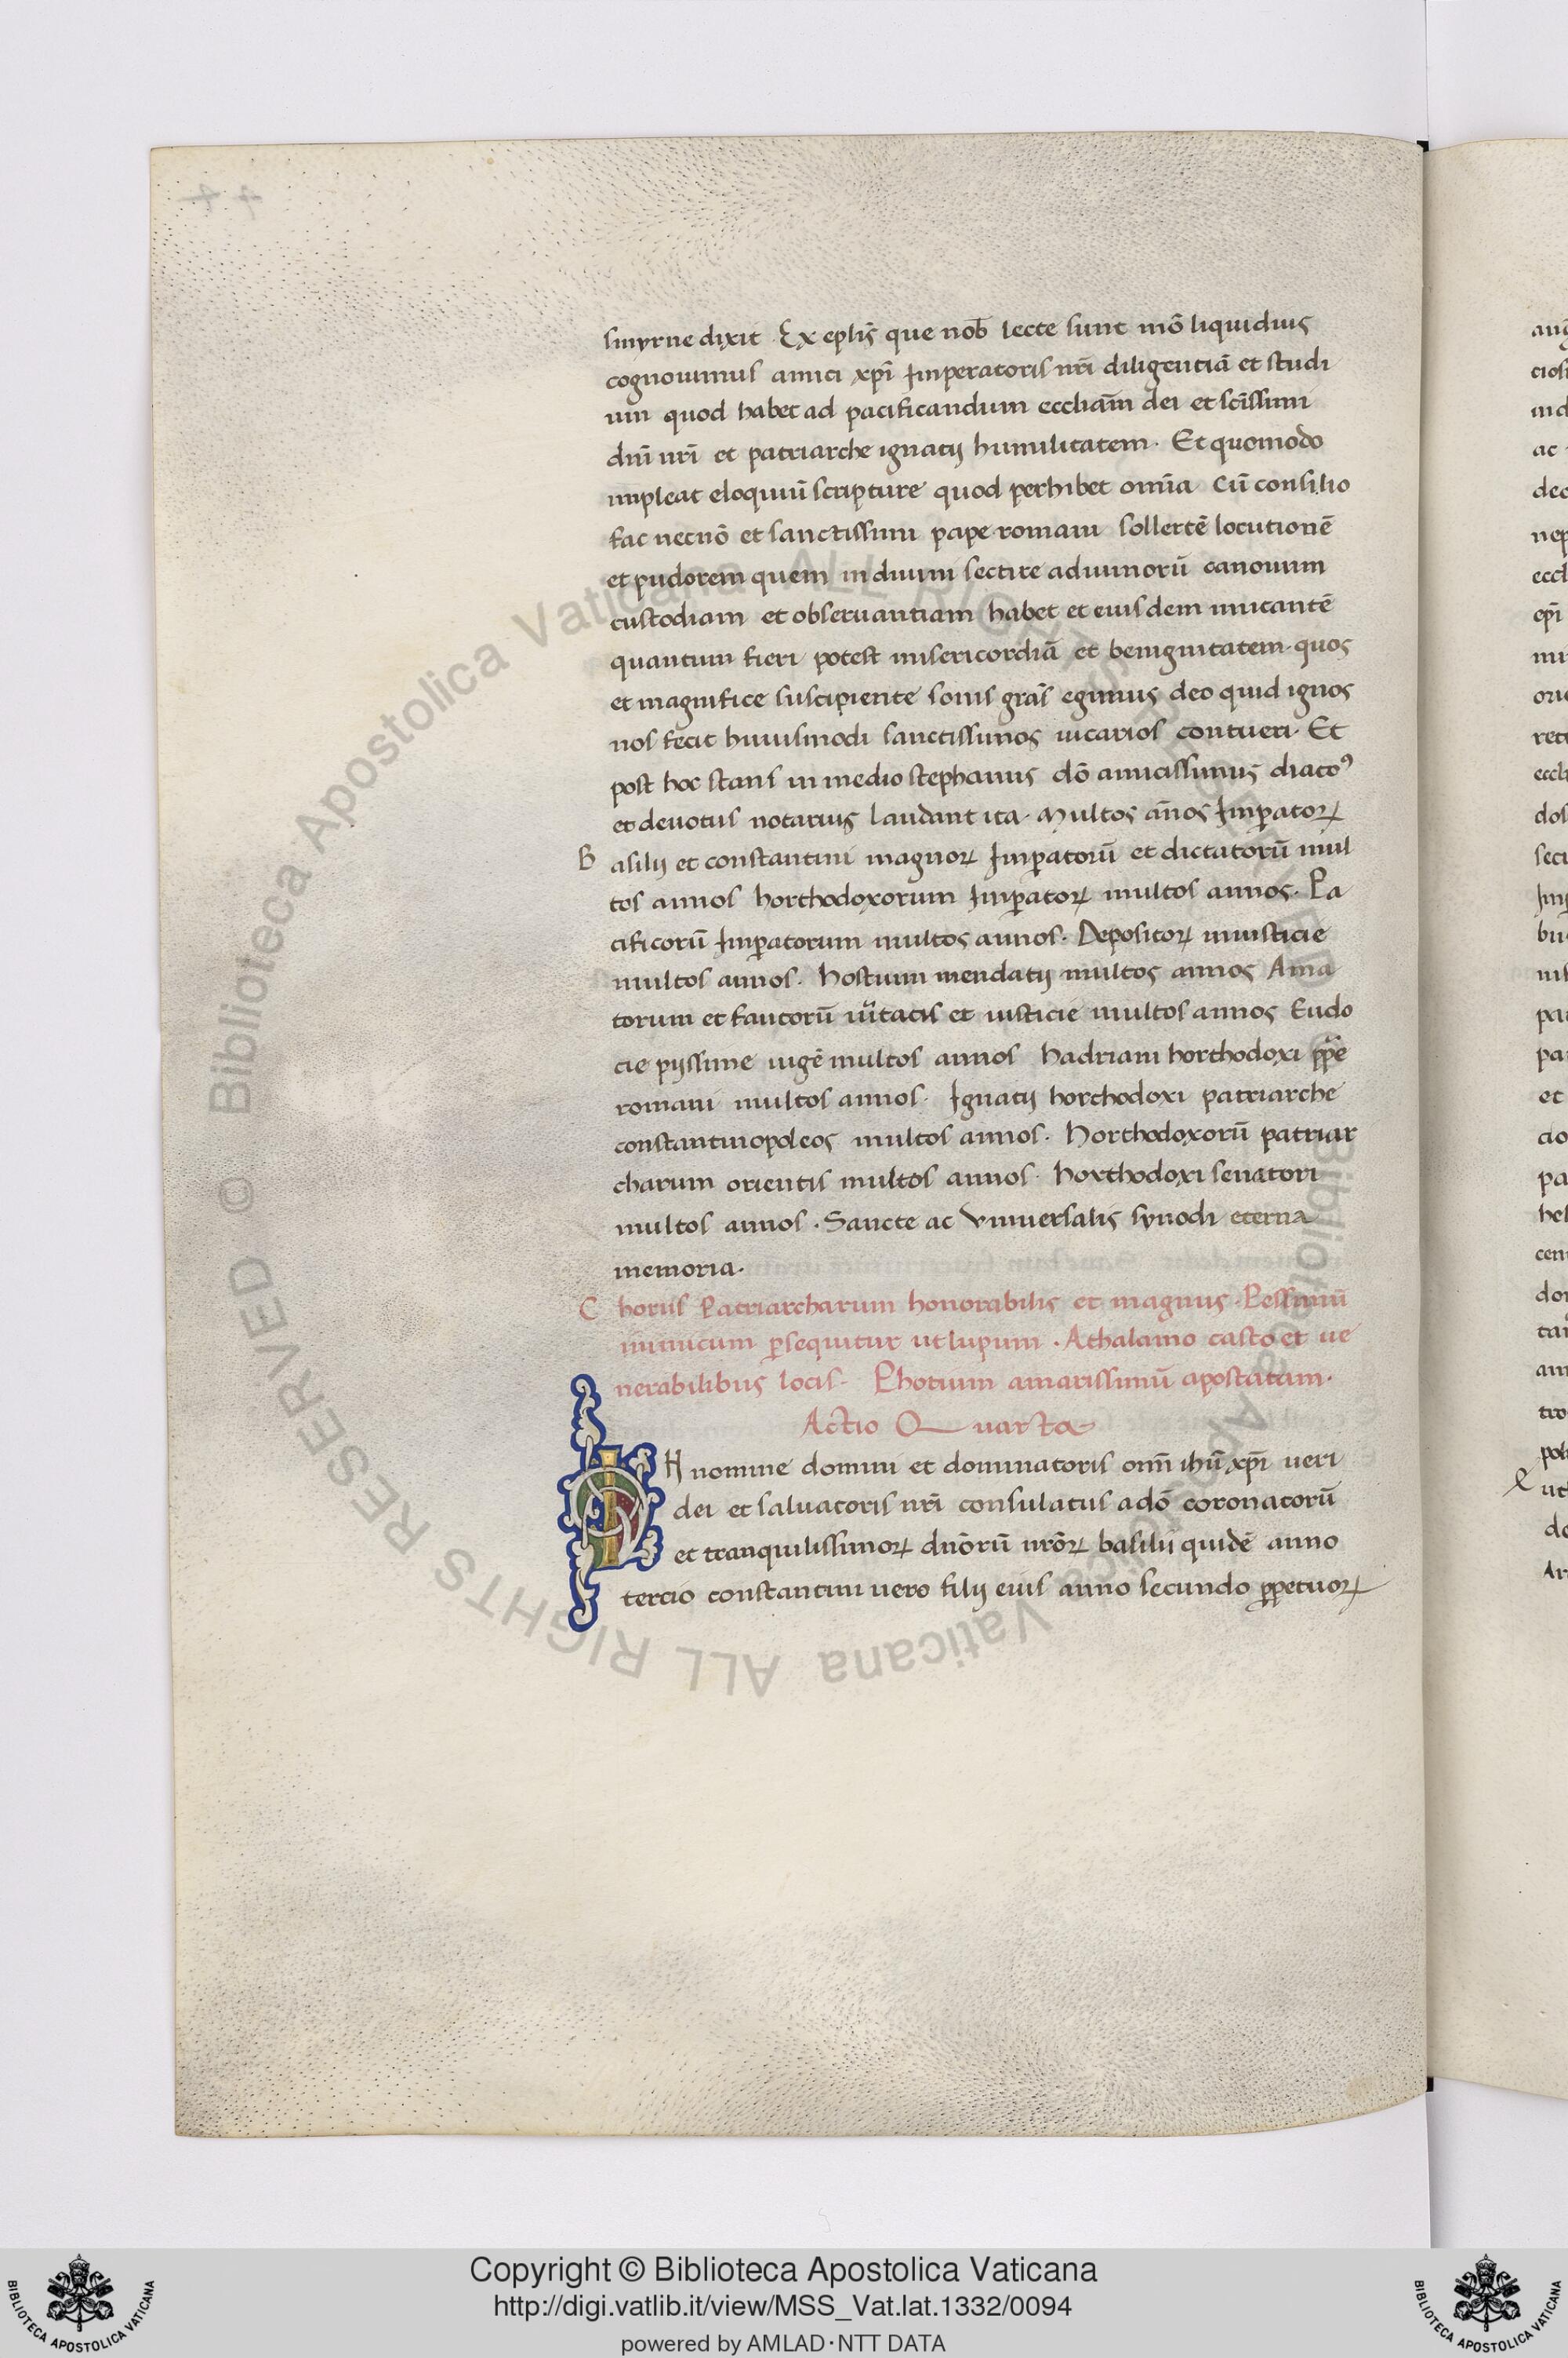 smyrne dixit. Ex eplīs que nob̄ lecte sunt mō liquidius
cognouimus amici xp̄i Imperatoris nr̄i diligentiā et studi
um quod habet ad pacificandum eccliam̄ dei et sc̄issimi
dn̄i nr̄i et patriarche ignatij humilitatem. Et quomodo
impleat eloquiū scripture quod perhibet omn̄ia cū consilio
fac necnō et sanctissimi pape romani sollertē locutionē
et pudorem quem
custodiam et obseruantiam habet et eiusdem imitantē
quantum fieri potest misericordiā et benignitatem. quos
et magnifice suscipiente sonis grās egimus deo quid ignos
nos fecit huiusmodi sanctissimos uicarios contueri. Et
post hoc stans in medio stephanus dō amicissimus diacoꝰ
et deuotus notarius laudant ita. Multos an̄os Imp̄atoꝝ
B asilij et constantini magnoꝝ Imp̄atorū et dictatorū mul
tos annos horthodoxorum Imp̄atoꝝ multos annos. Pa
cificorū Imp̄atorum multos annos. Depositoꝝ iniusticie
multos annos. hostium mendatij multos annos Ama
torum et fautorū ūitatis et iusticie multos annos Eudo
cie pijssime uigē multos annos hadriani horthodoxi p̄p̄e
romani multos annos. Ignatij horthodoxi patriarche
constantinopoleos multos annos. Horthodoxorū patriar
charum orientis multos annos. horthodoxi senatori
multos annos. Sancte ac Vniuersalis synodi eterna
memoria.
C horus Patriarcharum honorabilis et magnus. Pessimū
inimicum ꝑsequitur ut lupum. Athalamo casto et ue
nerabilibus locis. Photium amarissimū apostatam.
Actio Quarta
IN nomine domini et dominatoris omn̄ ihū xp̄i ueri
dei et saluatoris nr̄i consulatus adō coronatorū
et tranquilissimoꝝ dnōrū nrōꝝ basilii quidē anno
tercio constantini uero filij eius anno secundo ꝑpetuoꝝ
Copyright © Biblioteca Apostolica Vaticana
http://digi.vatlib.it/view/MSS_Vat.lat.1332/0094
powered by AMLAD·NTT DATA
BIBLIOTECA APOSTOLICA VATICANA
BIBLIOTECA APOSTOLICA VATICANA
© Biblioteca Apostolica Vaticana ALL RIGHTS RESERVED © Biblioteca Apostolica Vaticana ALL RIGHTS RESERVED